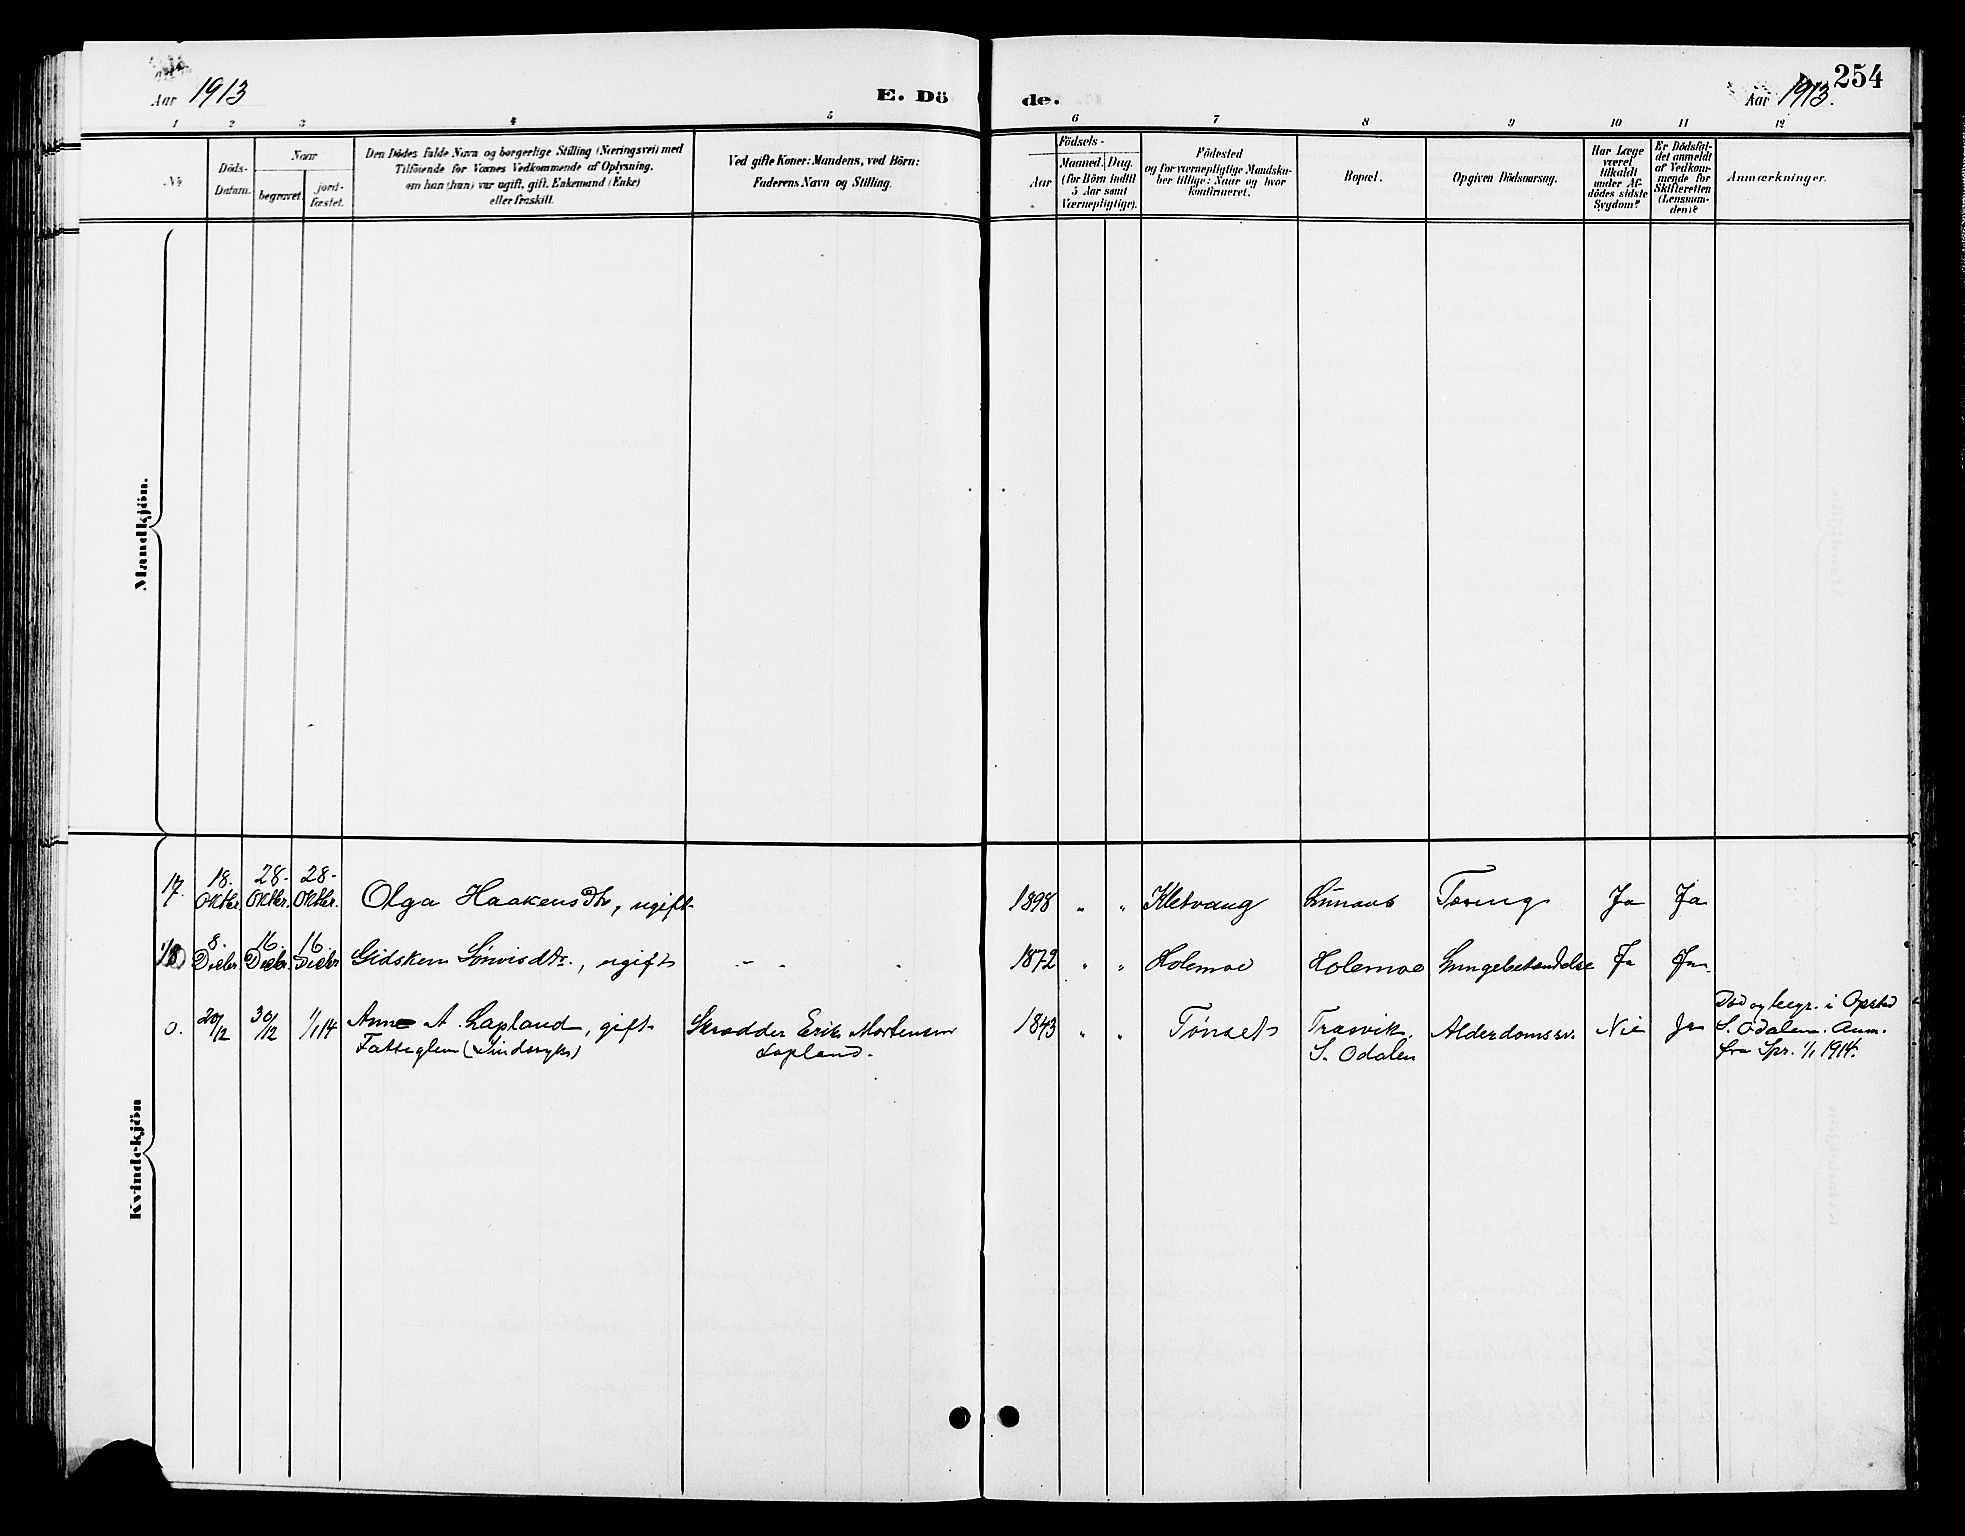 Aar 1913
E. Dö
de.
Aar 1913.
254
1 2 3 4 5 6 7 8 9 10 11 12
No
Döds-
Datum.
Naar
begravet.
jord-
fæstet.
Den Dödes fulde Navn og borgerlige Stilling (Næringsvei) med
Tilföiende for Voxnes Vedkommende af Oplysning,
om han (hun) var ugift, gift, Enkemand (Enke)
eller fraskilt.
Ved gifte Koner: Mandens, ved Börn:
Faderens Navn og Stilling.
Födsels-
Aar
Maaned. Dag.
(for Börn indtil
5 Aar samt
Værnepligtige).
Födested
og for værnepligtige Mandska-
ber tillige: Naar og hvor
konfirmeret.
Bopæl.
Opgiven Dödsaarsag.
Har Læge
været
tilkaldt
under Af-
dödes sidste
Sygdom?
Er Dödsfal-
det anmeldt
af Vedkom-
mende for
Skifteretten
(Lensman-
den)?
Anmærkninger.
Mandkjön.
Kvindekjön
17. 18. Oktbr. 28. Oktbr. 28. Oktbr. Olga Haakensdtr, ugift 1898 " " Kletvang Tæring Ja Ja
18 8. Decbr 16. Decbr. 16. Decbr Gidsken Simisdtr., ugift - - - 1872 " " Holemoe Holemoe Lungebetændelse Ja Ja
0. 20/12 30/12 1/1 14 Anne A. Lapland, gift Skrædder Erik Mortensen 1843 " " Tönset Træsvik, Alderdomssv. Nei Ja Död og begr. i Opstad
Fattiglem (Sindssyk) Lapland. S. Odalen S. Odalen. Anm.
fra Spr. 1/1 1914.